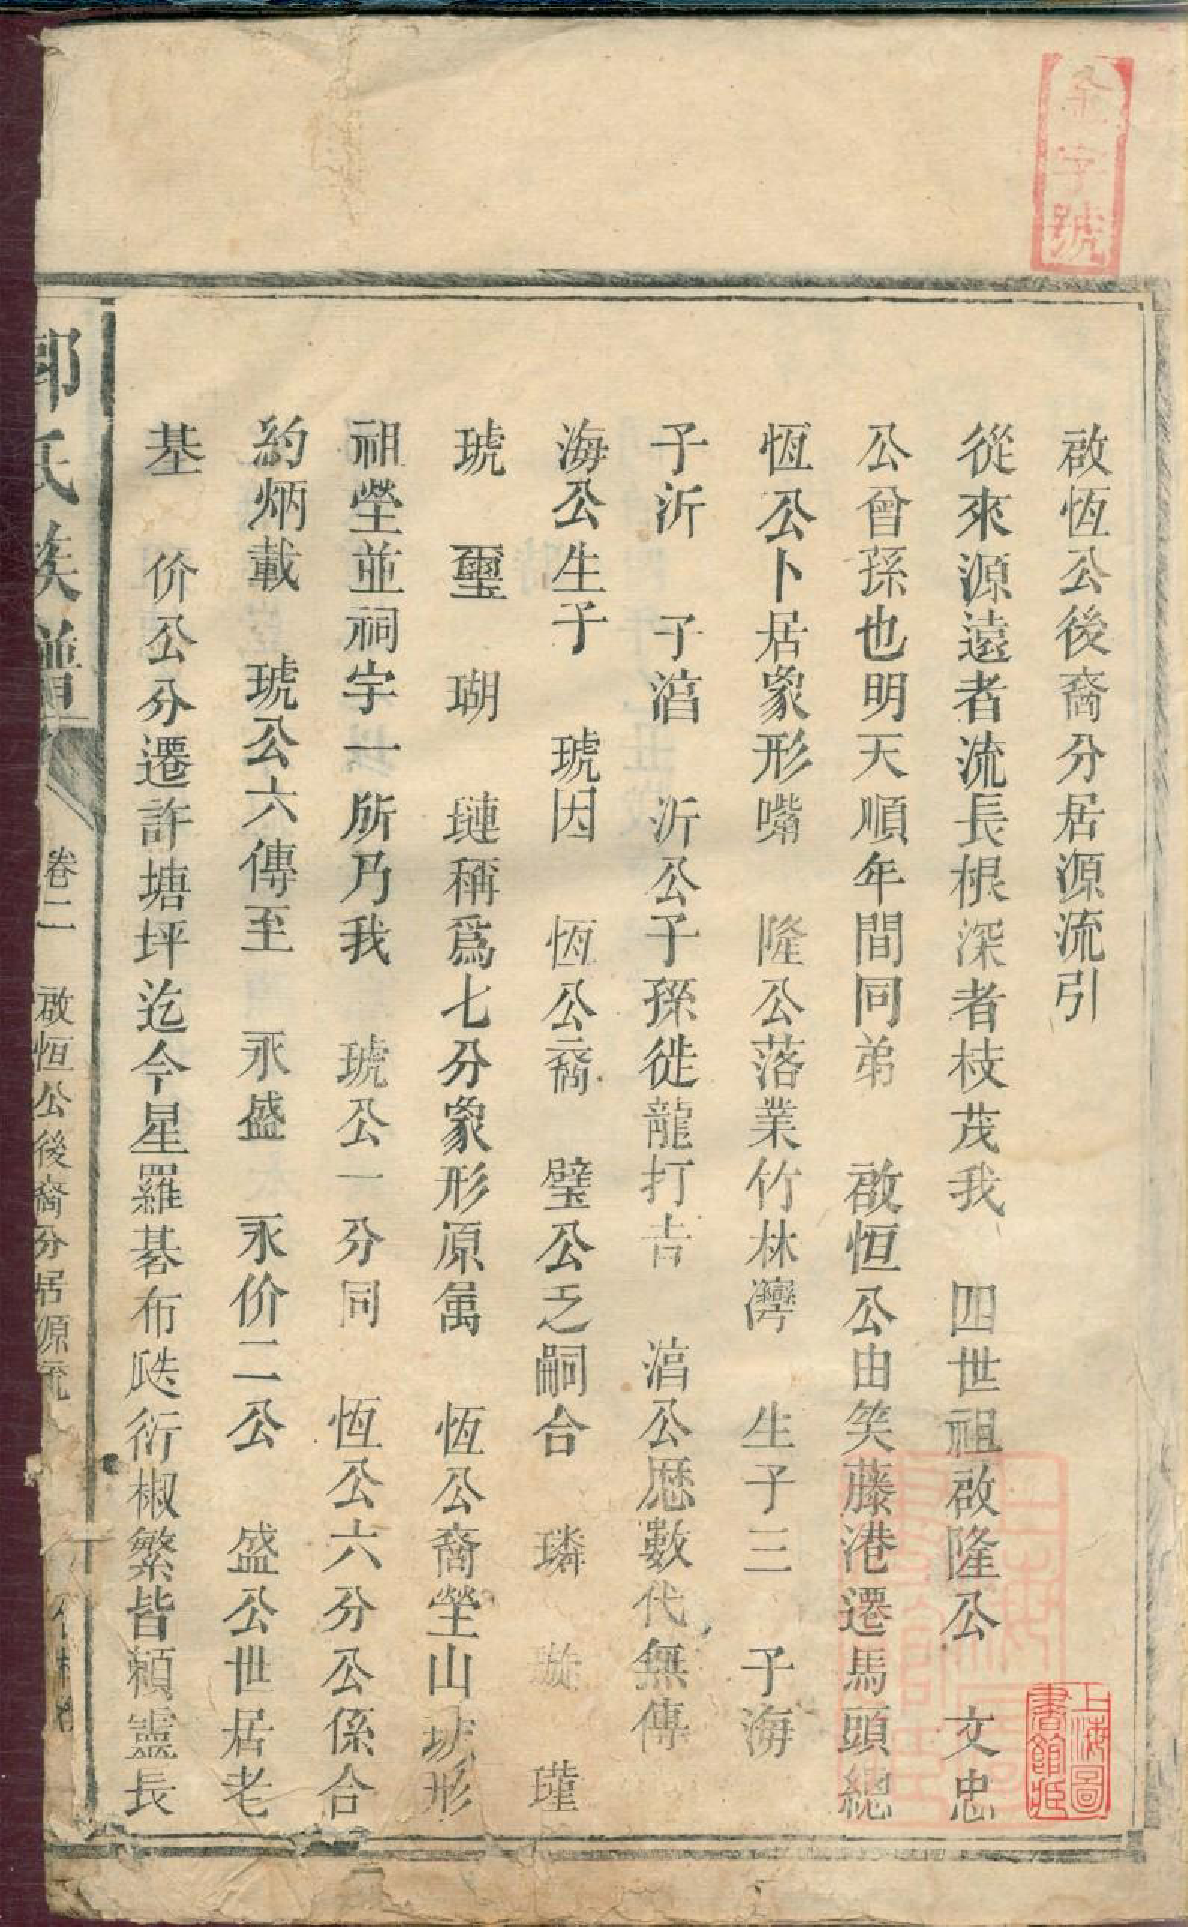 金字號
啟恆公後裔分居源流引
從來源遠者流長根深者枝茂我 四世祖啟隆公 文忠
公曾孫也明天順年間同弟 啟恒公由笑藤港遷馬頭總
恆公卜居象形嘴 隆公落業竹林灣 生子三 子海
子沂 子㵖 沂公子孫徙龍打吉 㵖公歷數代無傳
海公生子 琥因 恆公裔 璧公乏嗣合 璘 璇 瑾
琥 璽 瑚 璉稱爲七分象形原属 恆公裔塋山坟形
祖塋並祠宇一所乃我 琥公一分同 恆公六分公係合
約炳載 琥公六傳至 永盛 永价二公 盛公世居老
基 价公分遷許塘坪迄今星羅碁布瓞衍椒繁皆賴靈長
郭氏族譜 卷二 啟恒公後裔分居源流
上海圖書館藏